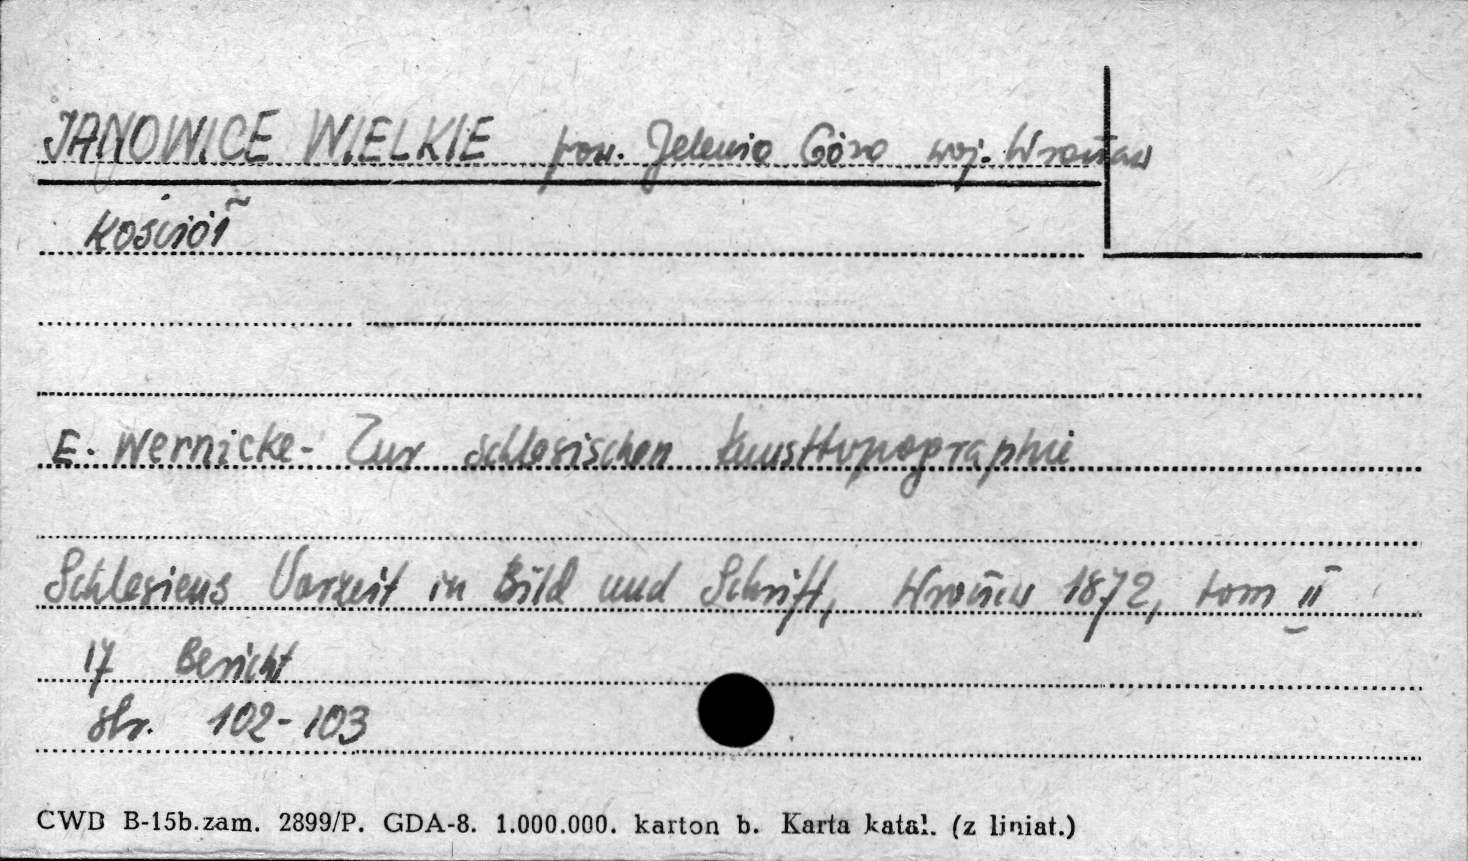 JANOWICE WIELKIE pow. Jelenia Góra woj. Wrocław
Kościół
E. Wernicke - Zur schlesischen Kunsttopographie
Schlesiens Vorzeit in Bild und Schrift, Wrocław 1872, tom II
17 Bericht
str. 102-103
CWD B-15b.zam. 2899/P. GDA-8. 1.000.000. karton b. Karta katal. (z liniat.)